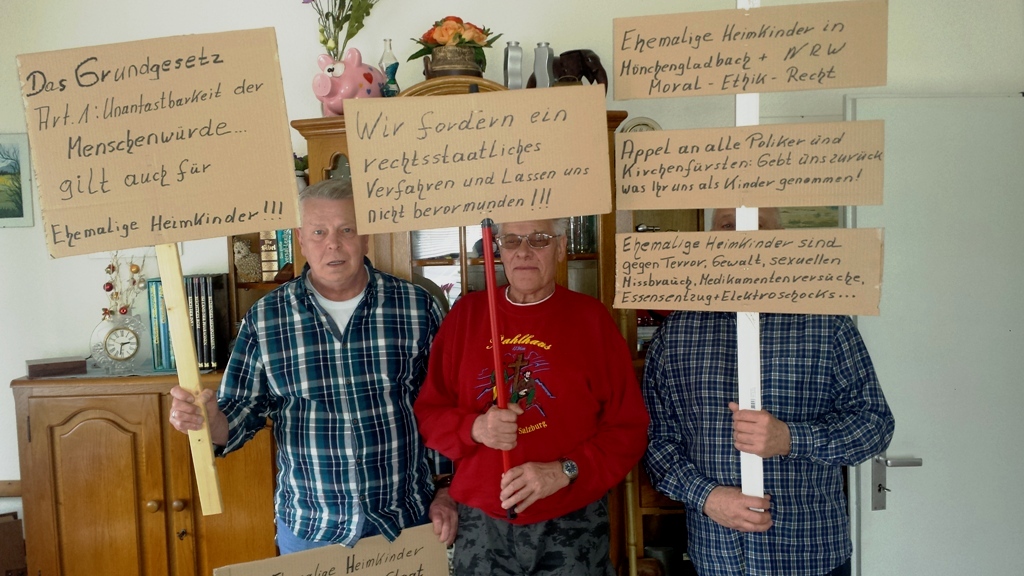 Das Grundgesetz
Art. 1: Unantastbarkeit der
Menschenwürde...
gilt auch für
Ehemalige Heimkinder!!!
Wir fordern ein
rechtsstaatliches
Verfahren und Lassen uns
nicht bevormunden!!!
Ehemalige Heimkinder in
Mönchengladbach + NRW
Moral - Ethik - Recht
Appel an alle Poliker und
Kirchenfürsten: Gebt uns zurück
was Ihr uns als Kinder genommen!
Ehemalige Heimkinder sind
gegen Terror, Gewalt, sexuellen
Missbrauch, Medikamentenversuche,
Essensentzug + Elektroschocks...
Salzburg
Ehemalige Heimkinder
Staat